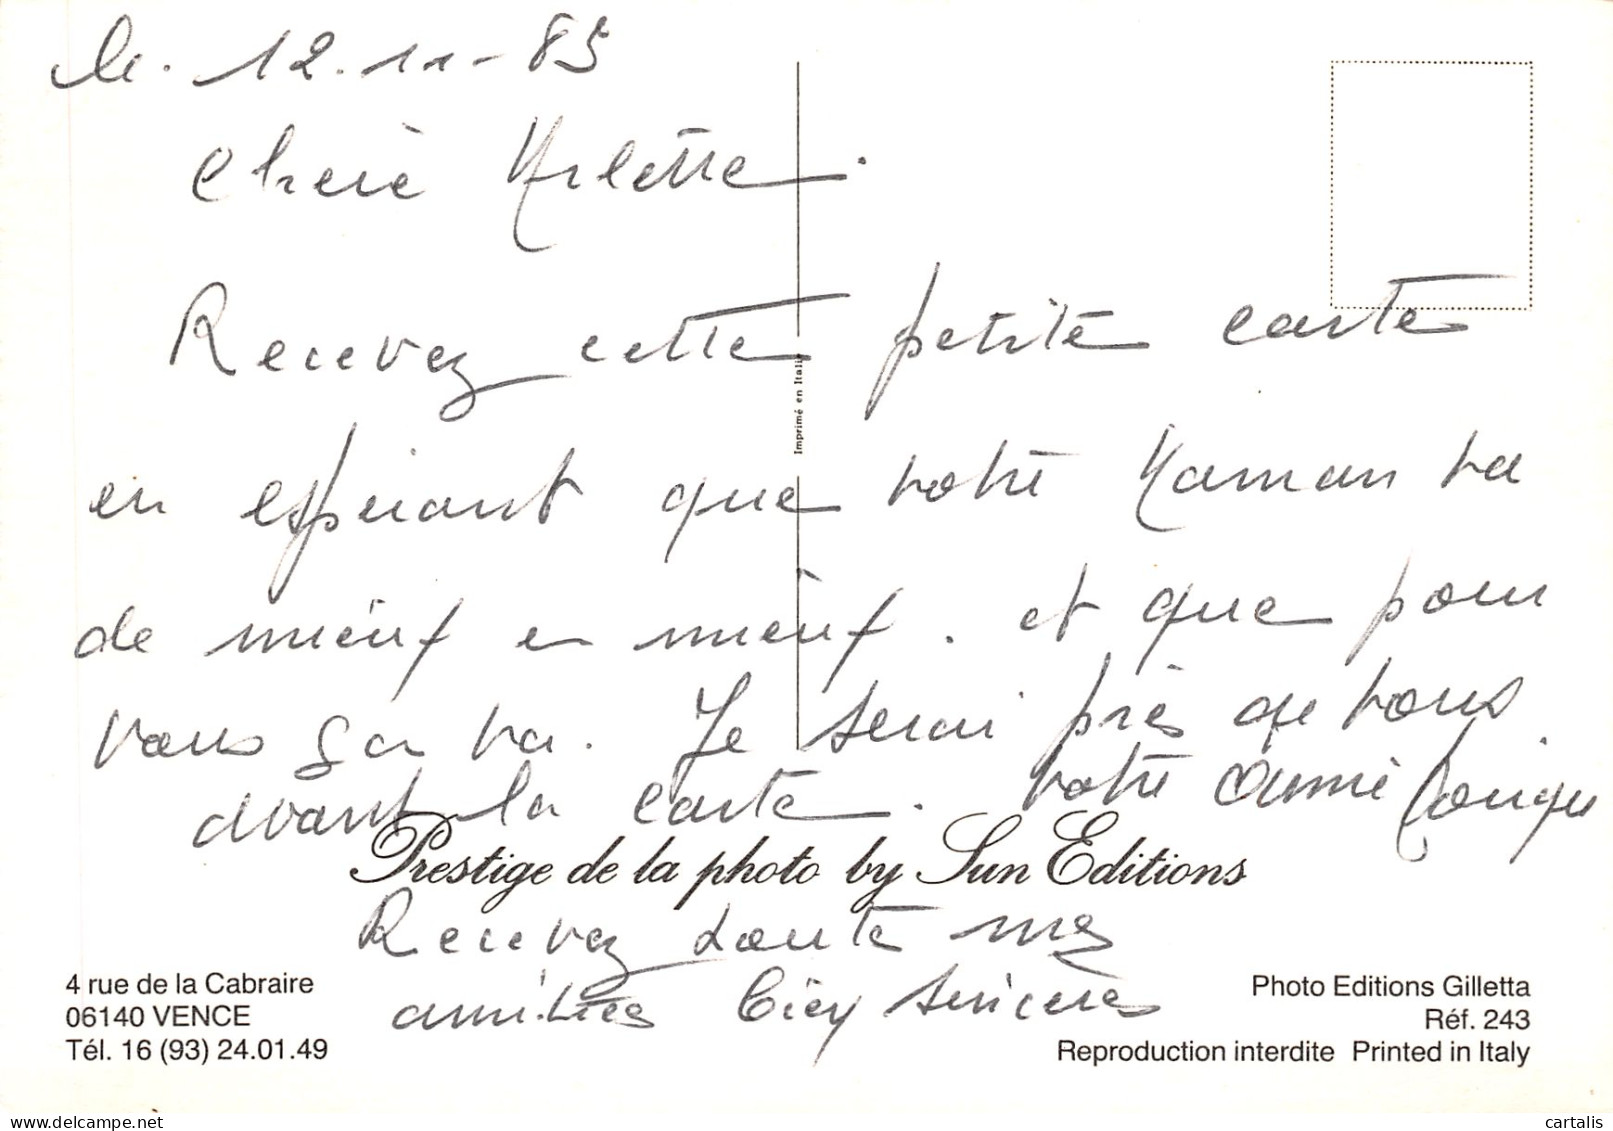 le. 12.11-85
Cherè Arlette.
Recevez cette petite carte
en esperant que votre Maman va
de mieux en mieux. et que pour
vous ça va. Je serai près de vous
avant la carte. votre amie
Prestige de la photo by Sun Editions
Recevez toute mes
amitiées bien sincères
4 rue de la Cabraire
06140 VENCE
Tél. 16 (93) 24.01.49
Photo Editions Gilletta
Réf. 243
Reproduction interdite Printed in Italy
Imprimé en Italie
cartalis